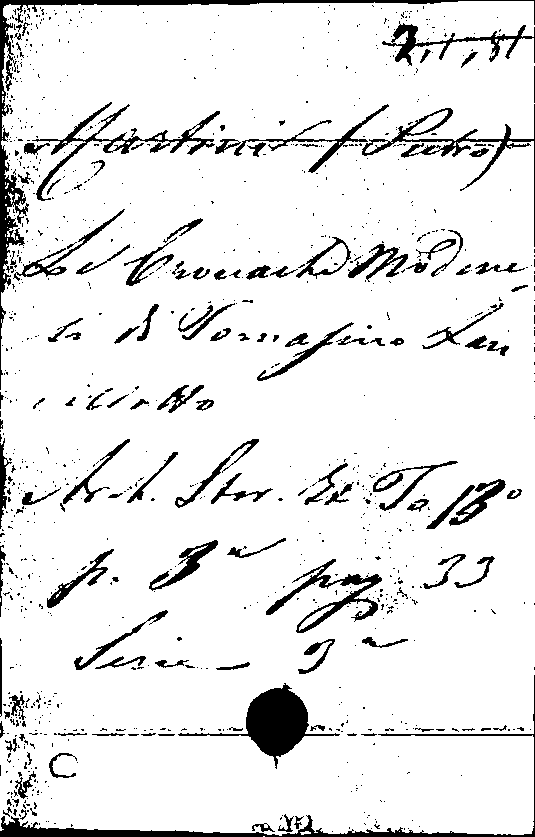 2,1,51
Martini (Pietro)
Le Cronache Modene-
si di Tomasino Lan
cillotto
Arch. Stor. It. To 13°
p. 3ª pag 33
Serie 3ª
C